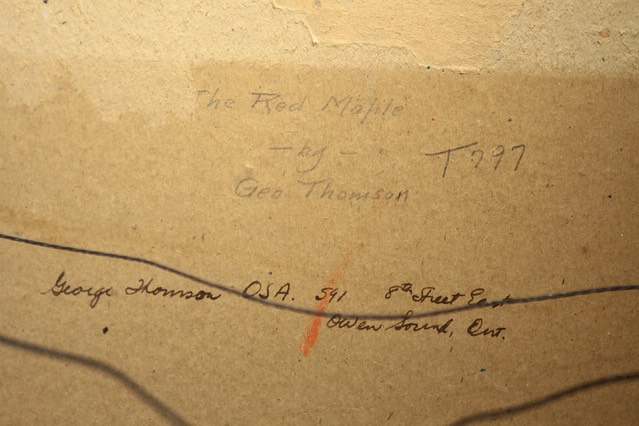 The Red Maple
- by - T797
Geo Thomson
George Thomson OSA. 591 8th Street East
Owen Sound, Ont.